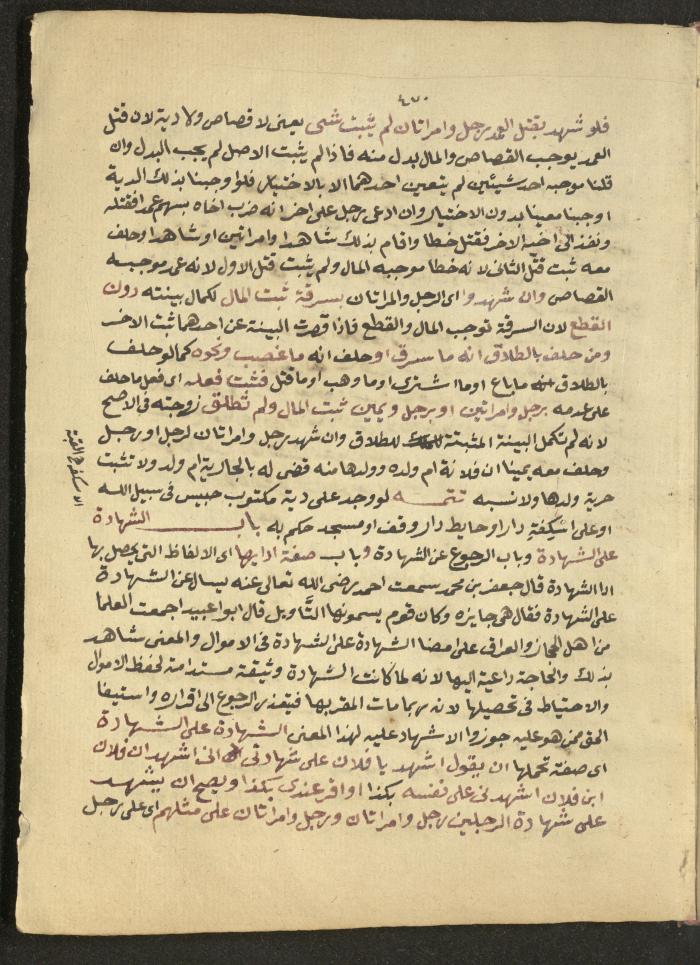 ٤٧٠
فلو شهد بقتل العمد رجل وامراتان لم يثبت شى يعنى لا قصاص ولا دية لان قتل
العمد يوجب القصاص والمال بدل منه فاذا لم يثبت الاصل لم يجب البدل وان
قلنا موجبه احد شيئين لم يتعين احدهما الا بالاختيار فلو اوجبنا بذلك الدية
اوجبنا معينا بدون الاختيار وان ادعى رجل على اخر انه ضرب اخاه بسهم عمدا فقتله
ونفذ الى اخيه الاخر فقتل خطا واقام بذلك شاهدا وامراتين او شاهدا وحلف
معه ثبت قتل الثانى لانه خطا موجبه المال ولم يثبت قتل الاول لانه عمد موجبه
القصاص وان شهدوا اى الرجل والمراتان بسرقة ثبت المال لكمال بينته دون
القطع لان السرقة توجب المال والقطع فاذا قصرت البينة عن احدهما ثبت الاخر
ومن حلف بالطلاق انه ما سرق او حلف انه ما غصب ونحوه كما لو حلف
بالطلاق انه ما باع او ما اشترى او ما وهب او ما قتل فثبت فعله اى فعل ما حلف
على عدمه برجل وامراتين او برجل ويمين ثبت المال ولم تطلق زوجته فى الاصح
لانه لم تكمل البينة المثبتة للطلاق وان شهد رجل وامراتان لرجل او رجل
وحلف معه يمينا ان فلانة ام ولده وولدها منه قضى له بالجارية ام ولد ولا تثبت
حرية ولدها ولا نسبه تتمه لو وجد على دية مكتوب حبيس فى سبيل الله
او على اسكفة دار او حايط دار وقف او مسجد حكم به باب الشهادة
على الشهادة وباب الرجوع عن الشهادة وباب صفة ادايها اى الالفاظ التى يحصل بها
ادا الشهادة قال جعفر بن محمد سمعت احمد رضى الله تعالى عنه يسال عن الشهادة
على الشهادة فقال هى جايزه وكان قوم يسمونها التاويل قال ابو عبيد اجمعت العلما
من اهل الحجاز والعراق على امضا الشهادة على الشهادة فى الاموال والمعنى شاهد
بذلك والحاجة داعية اليها لانه لما كانت الشهادة وثيقة مستدامة لحفظ الاموال
والاحتياط فى تحصيلها لانه ربما مات المقر بها فيتعذر الرجوع الى اقراره واستيفا
الحق ممن هو عليه جوزوا الاشهاد عليه لهذا المعنى الشهادة على الشهادة
اى صفة تحملها ان يقول اشهد يا فلان على شهادتى انى اشهد ان فلان
ابن فلان اشهدنى على نفسه بكذا او اقر عندى بكذا ويصح ان يشهد
على شهادة الرجلين رجل وامراتان ورجل وامراتان على مثلهم اى على رجل